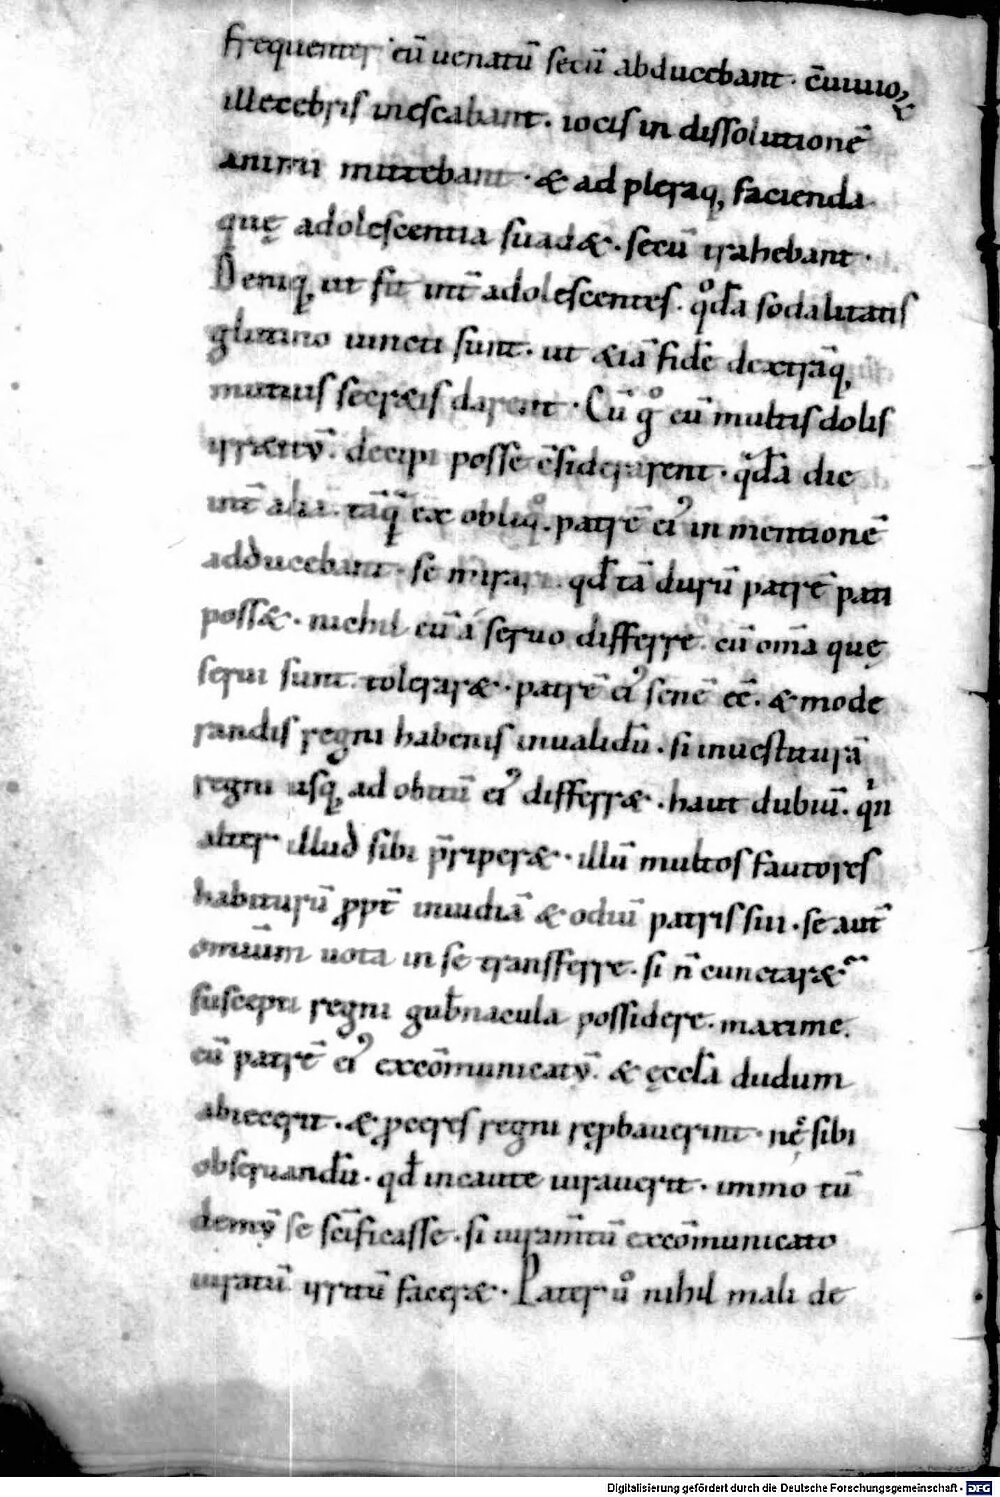 frequenter cū uenatū secū abducebant · c̄uiuioꝝ
illecebris inescabant · iocis in dissolutionē
animi mittebant · & ad pleraq; facienda
quę adolescentia suad& · secū trahebant ·
Deniq; ut fit int̄ adolescentes · qͦdā sodalitatis
glutino iuncti sunt · ut &iā fidē dextrāq;
mutuis secr&is darent · Cū gͦ eū multis dolis
irr&itū · decipi posse c̄siderarent · qᵃdā die
int̄ alia · tāqᵃ̄ ex obliqͦ · patrē eiꝰ in mentionē
adducebant · se mirari · qđ tā durū patrē pati
poss& · nichil eū á seruo differre · cū om̄a quę
serui sunt tolerar& · patrē eiꝰ senē eē · & mode
randis regni habenis inualidū · si inuestiturā
regni usq; ad obitū eiꝰ differr& · haut dubiū · qⁱn
alter illud sibi p̄riper& · illū multos fautores
habiturū ꝓpt̄ inuidiā & odiū patris sui · se aut̄
omniū uota in se transferre · si n̄ cunctar&
suscepti regni gub̄nacula possidere · maxime ·
cū patrē eiꝰ excōmunicatū · & ęccl̄a dudum
abiecerit · & ꝓceres regni rep̱bauerint · nec̄ sibi
obseruandū · qđ incaute iurauerit · immo tū
demū se sc̄ificasse · si iuram̄tū excōmunicato
iuratū irritū facer& · Pater ūͦ nihil mali de
Digitalisierung gefördert durch die Deutsche Forschungsgemeinschaft - DFG